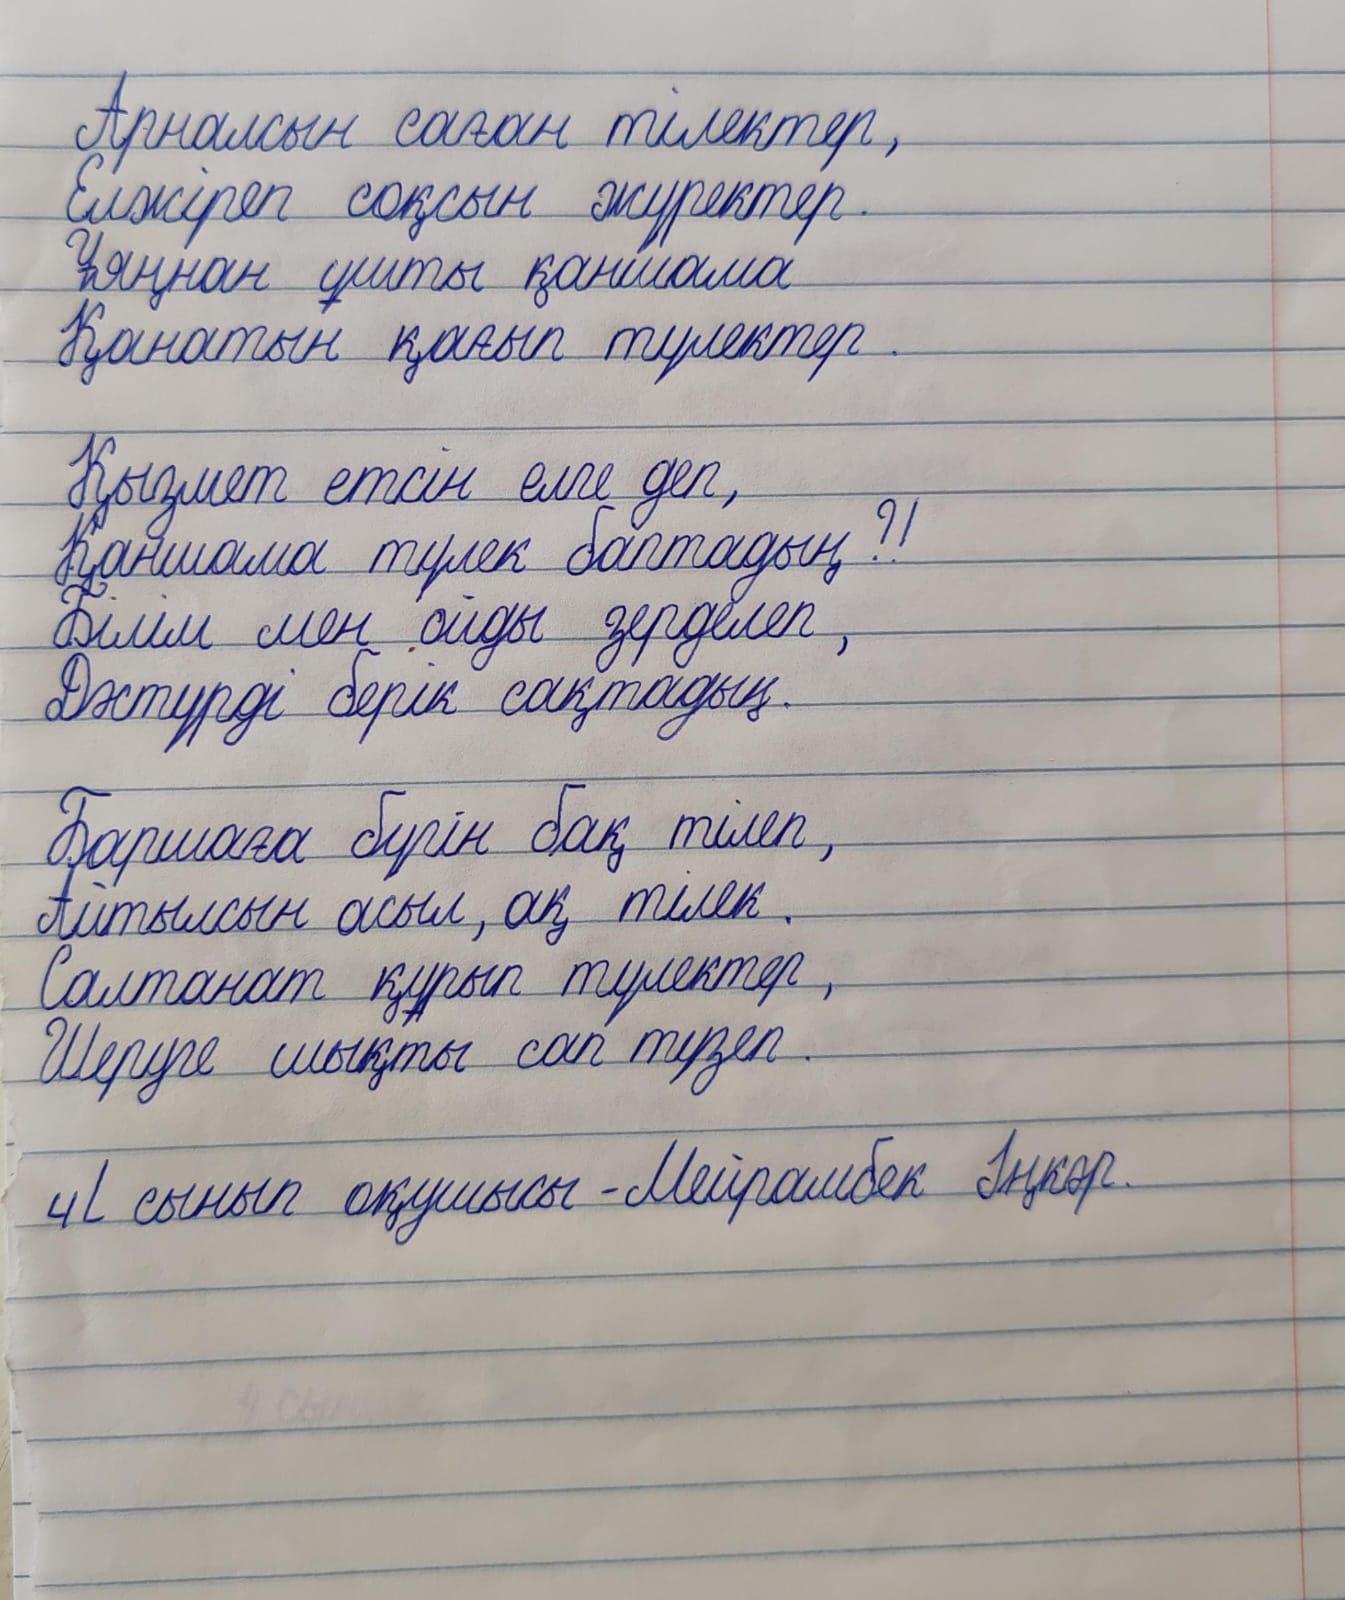 Арналсын саған тілектер,
Елжіреп соқсын жүректер.
Ұяңнан ұшты қаншама
Қанатын қағып түлектер.
Қызмет етсін елге деп,
Қаншама түлек баптадың?!
Білім мен ойды зерделеп,
Дәстүрді берік сақтадың.
Баршаға бүгін бақ тілеп,
Айтылсын асыл, ақ тілек.
Салтанат құрып түлектер,
Шеруге шықты сап түзеп.
4L сынып оқушысы - Мейрамбек Іңкәр.